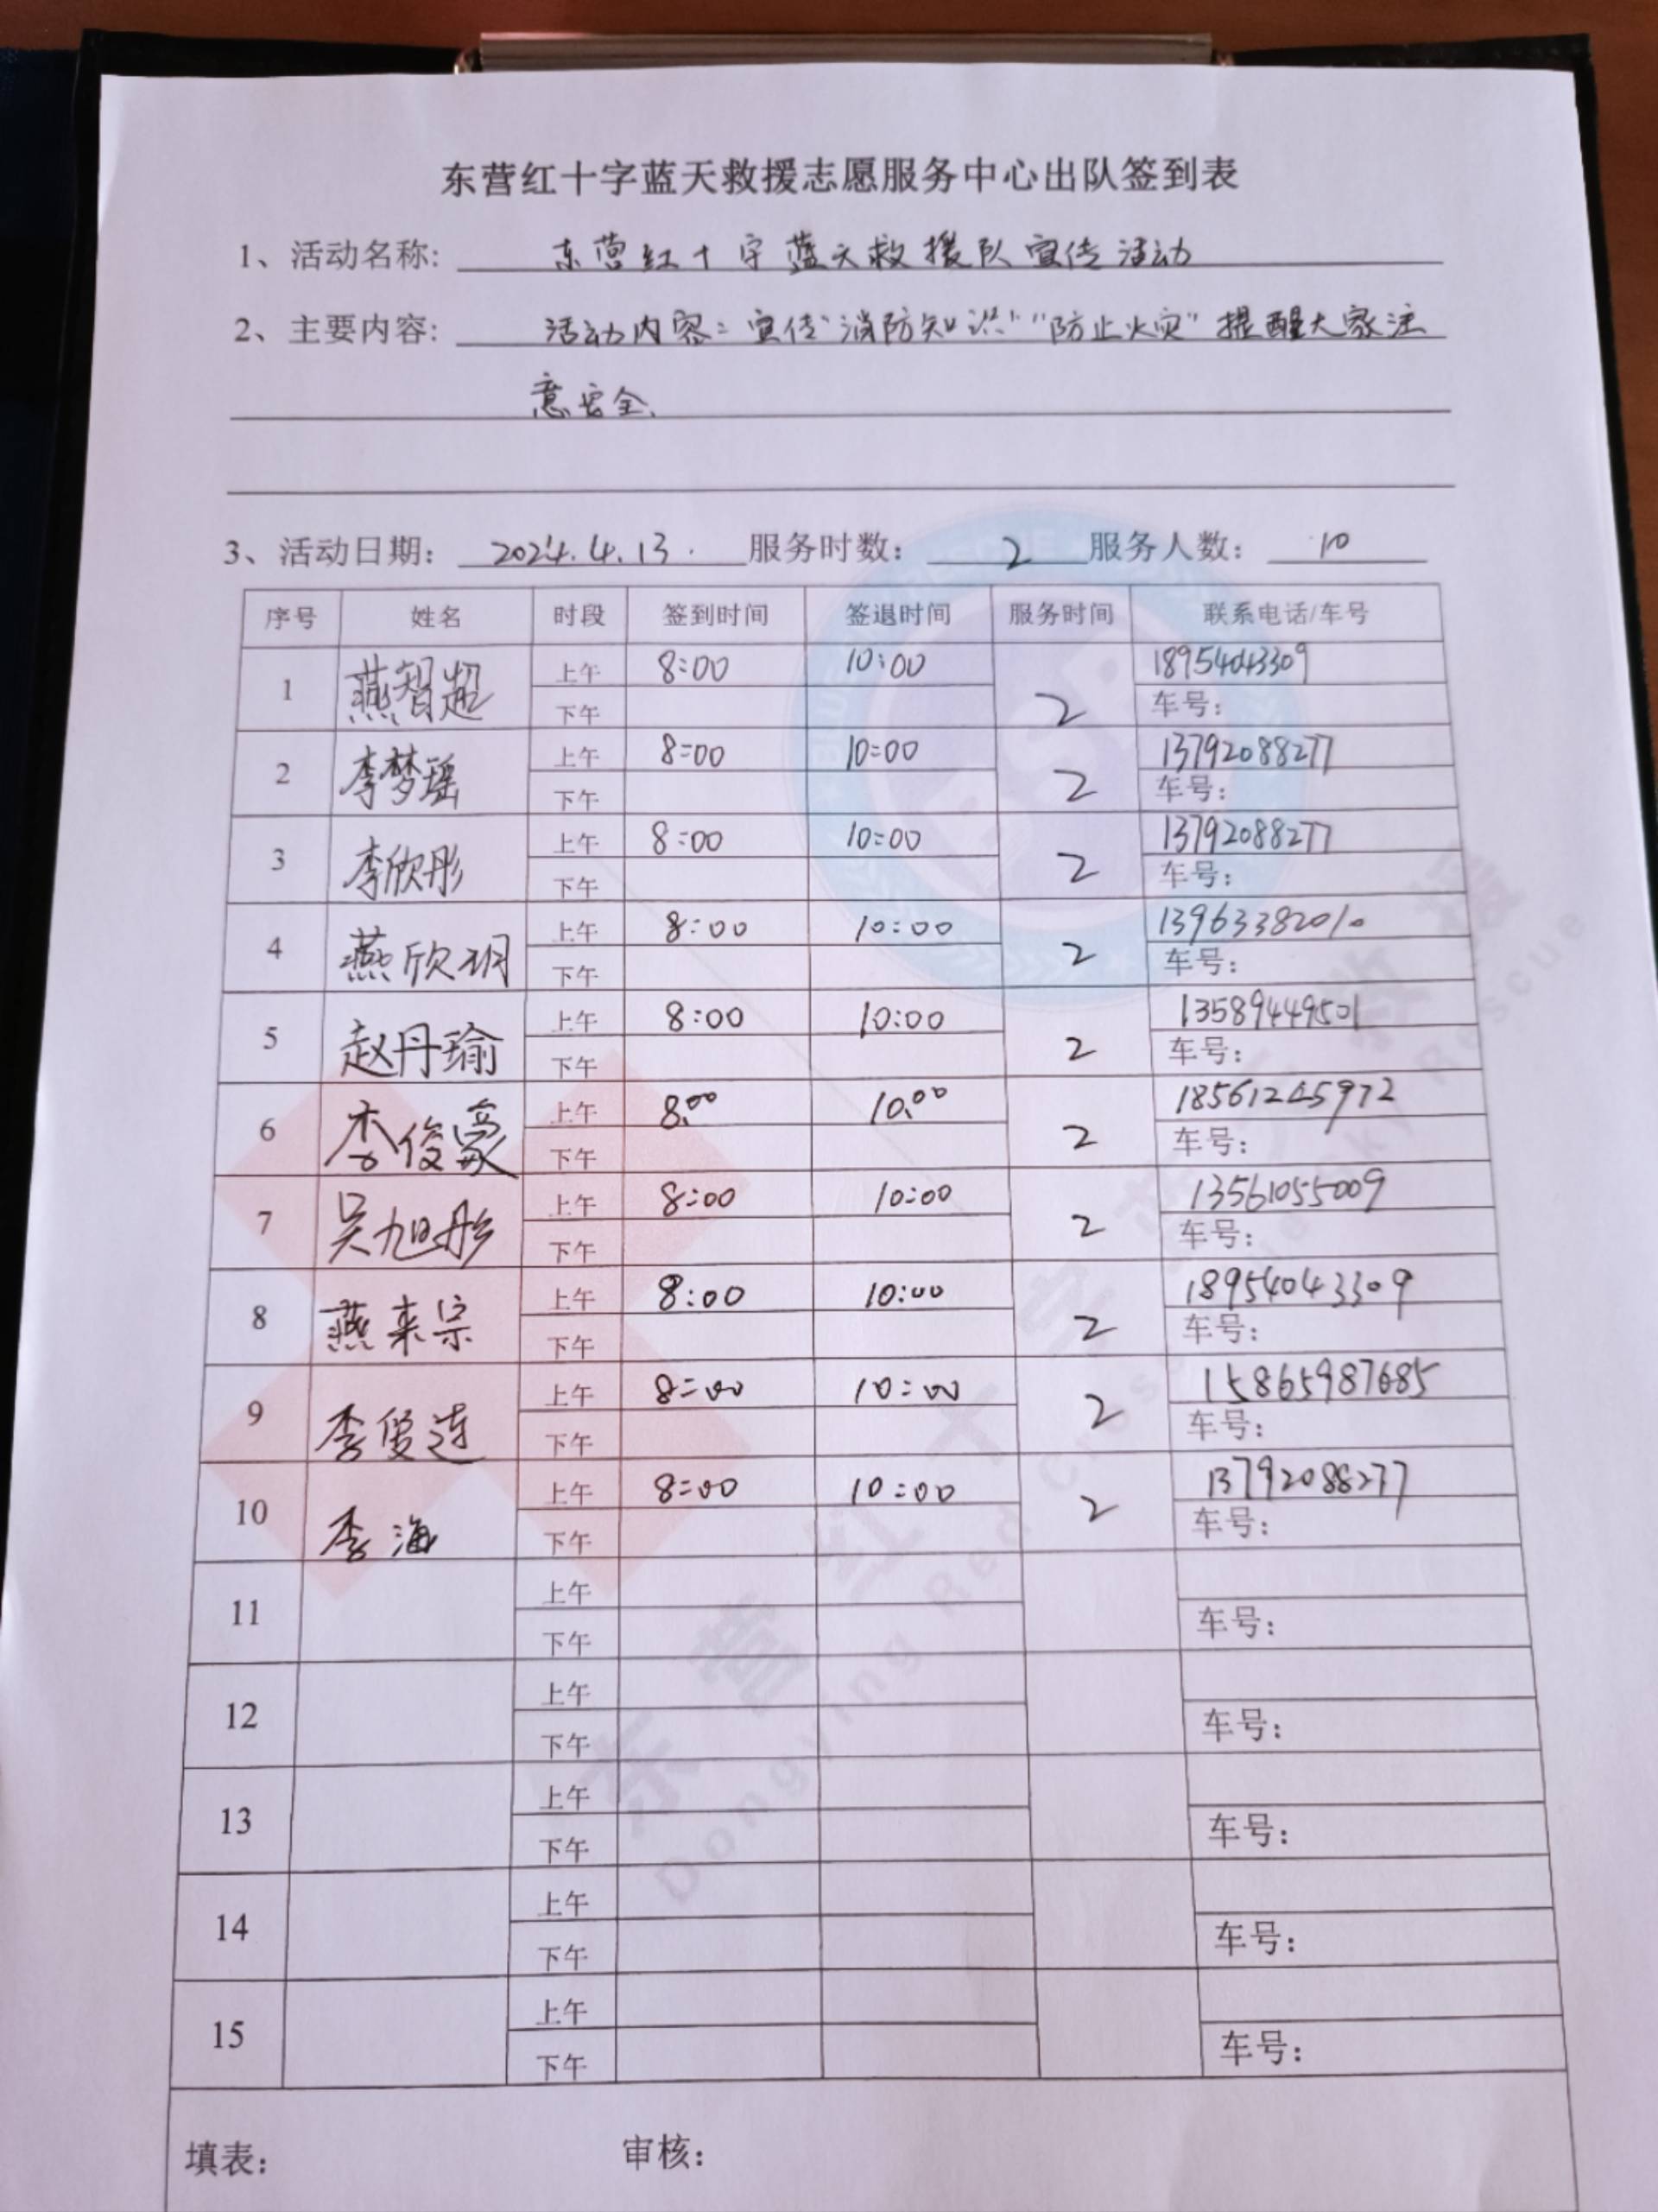 东营红十字蓝天救援志愿服务中心出队签到表
1、活动名称: 东营红十字蓝天救援队宣传活动
2、主要内容: 活动内容:宣传"消防知识""防止火灾"提醒大家注
意安全.
3、活动日期: 2024.4.13. 服务时数: 2 服务人数: 10
序号 姓名 时段 签到时间 签退时间 服务时间 联系电话/车号
1 燕智超 上午 8:00 10:00 2 18954043309
下午 车号:
2 李梦瑶 上午 8:00 10:00 2 13792088277
下午 车号:
3 李欣彤 上午 8:00 10:00 2 13792088277
下午 车号:
4 燕欣玥 上午 8:00 10:00 2 13963382010
下午 车号:
5 赵丹瑜 上午 8:00 10:00 2 13589449501
下午 车号:
6 李俊豪 上午 8:00 10:00 2 18561245972
下午 车号:
7 吴旭彤 上午 8:00 10:00 2 13561055009
下午 车号:
8 燕来宗 上午 8:00 10:00 2 18954043309
下午 车号:
9 李爱莲 上午 8:00 10:00 2 15865987685
下午 车号:
10 李海 上午 8:00 10:00 2 13792088277
下午 车号:
11 上午
下午 车号:
12 上午
下午 车号:
13 上午
下午 车号:
14 上午
下午 车号:
15 上午
下午 车号:
填表: 审核:
东营红十字蓝天救援
Dongying Red Cross Blue Sky Rescue